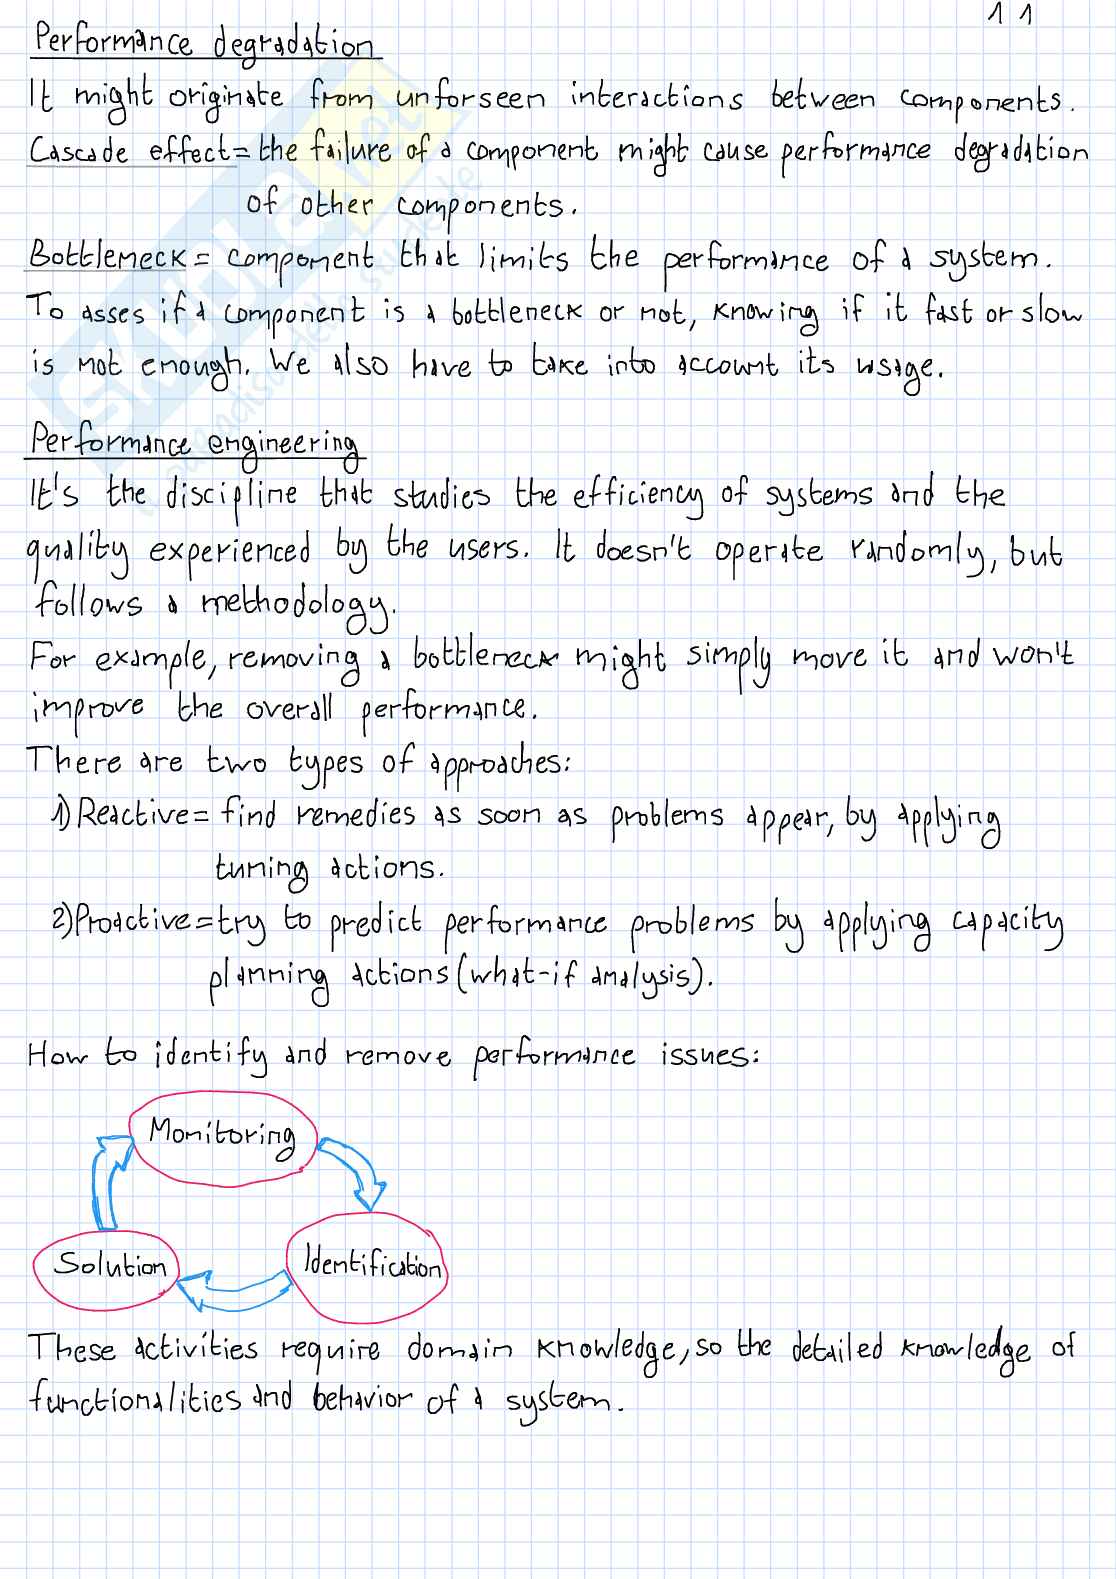 11
Performance degradation
It might originate from unforseen interactions between components.
Cascade effect= the failure of a component might cause performance degradation
of other components.
Bottleneck= component that limits the performance of a system.
To asses if a component is a bottleneck or not, knowing if it fast or slow
is not enough. We also have to take into account its usage.
Performance engineering
It's the discipline that studies the efficiency of systems and the
quality experienced by the users. It doesn't operate randomly, but
follows a methodology.
For example, removing a bottleneck might simply move it and won't
improve the overall performance.
There are two types of approaches:
1) Reactive= find remedies as soon as problems appear, by applying
tuning actions.
2) Proactive= try to predict performance problems by applying capacity
planning actions (what-if analysis).
How to identify and remove performance issues:
Monitoring
Solution
Identification
These activities require domain knowledge, so the detailed knowledge of
functionalities and behavior of a system.